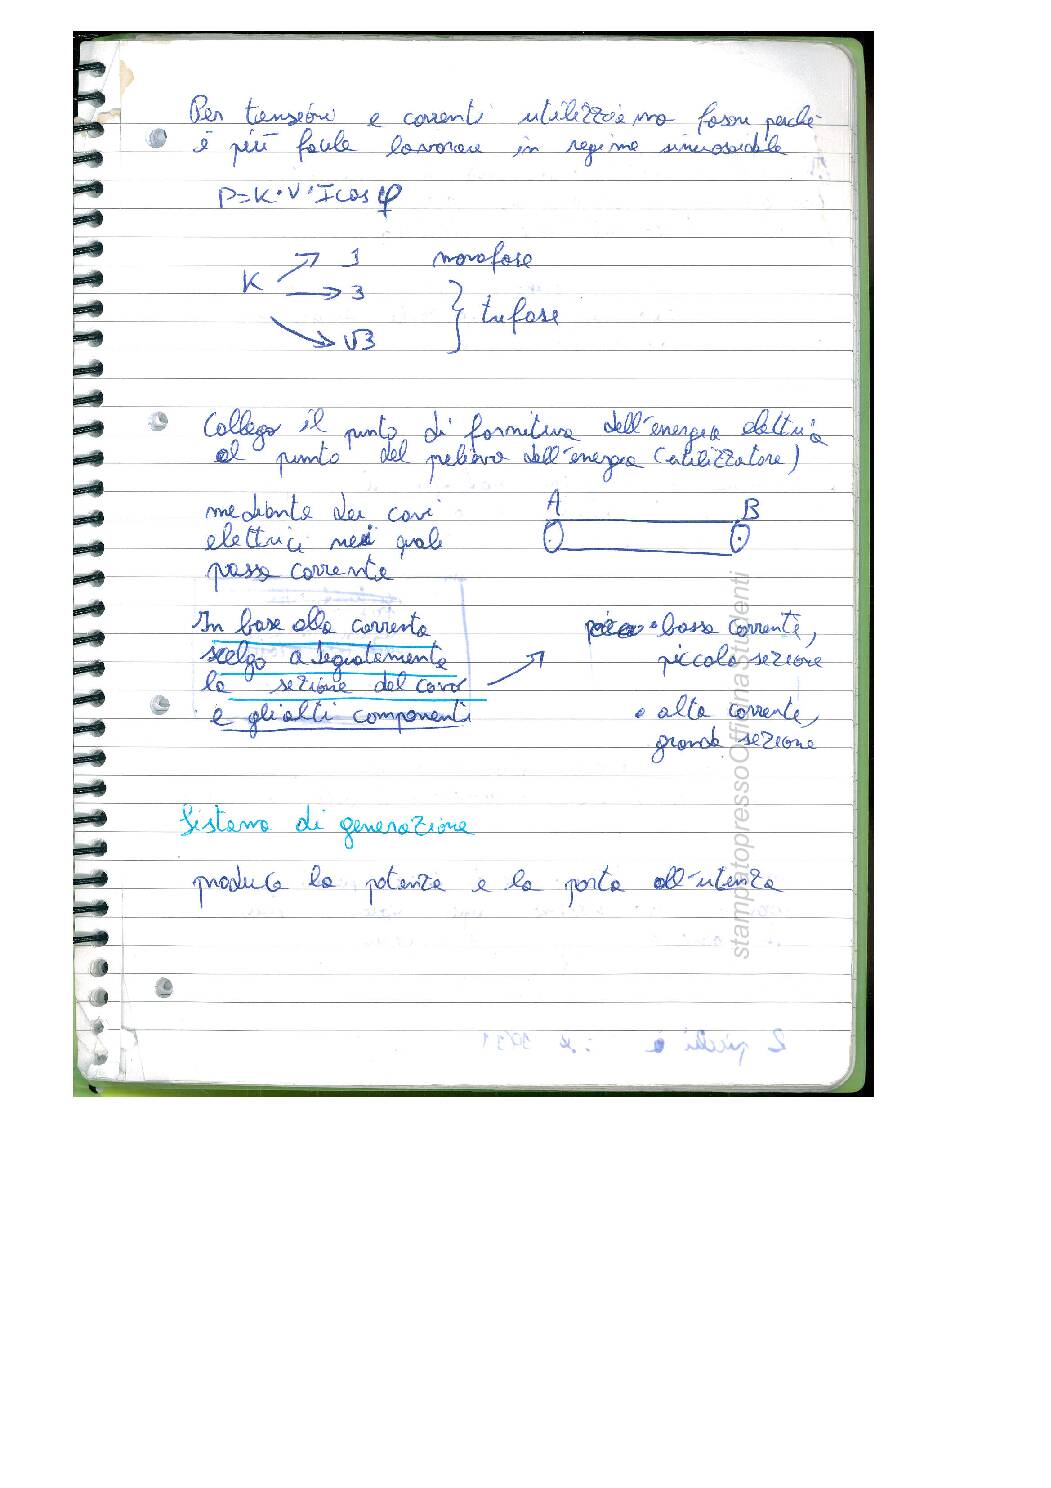 Per tensioni e correnti utilizziamo fasori perché
è più facile lavorare in regime sinusoidale
P=K·V·I cos φ
K
1 monofase
3
√3
trifase
Collego il punto di fornitura dell'energia elettrica
al punto del prelievo dell'energia (utilizzatore)
mediante dei cavi
elettrici nei quali
passa corrente
A B
In base alla corrente
scelgo adeguatamente
la sezione del cavo
e gli altri componenti
• bassa corrente,
piccola sezione
• alta corrente,
grande sezione
Sistema di generazione
produce la potenza e la porta all'utenza
stampatopressoOfficinaStudenti